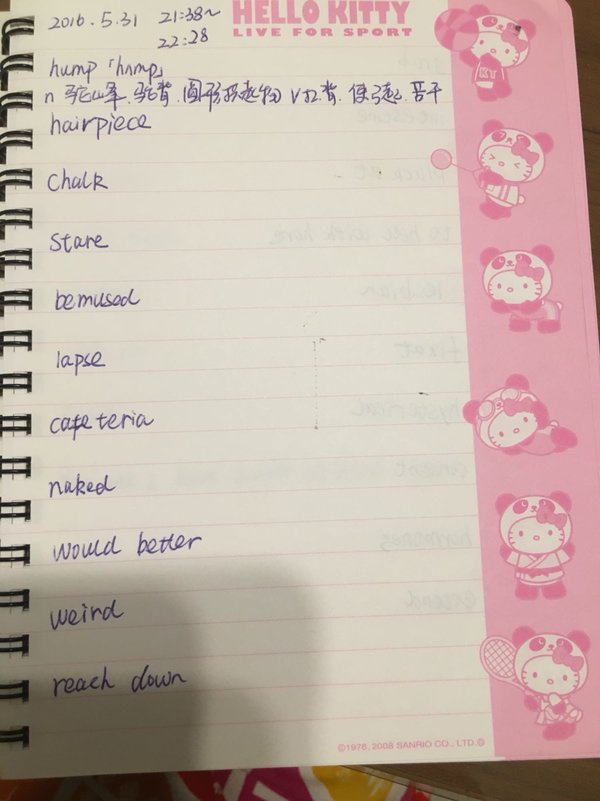 2016.5.31 21:38~
22:28
HELLO KITTY
LIVE FOR SPORT
hump「hʌmp」
n 驼峰.驼背.圆形隆起物 v 拱背.使弓起.苦干
hairpiece
chalk
stare
bemused
lapse
cafeteria
naked
would better
weird
reach down
KT
©1976, 2008 SANRIO CO., LTD.®